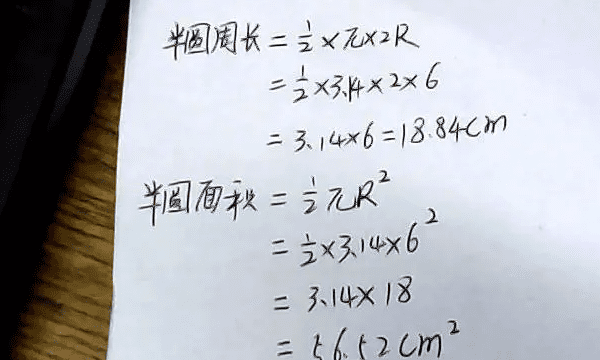 半圆周长=½×π×2R
=½×3.14×2×6
=3.14×6=18.84cm
半圆面积=½πR²
=½×3.14×6²
=3.14×18
=56.52cm²